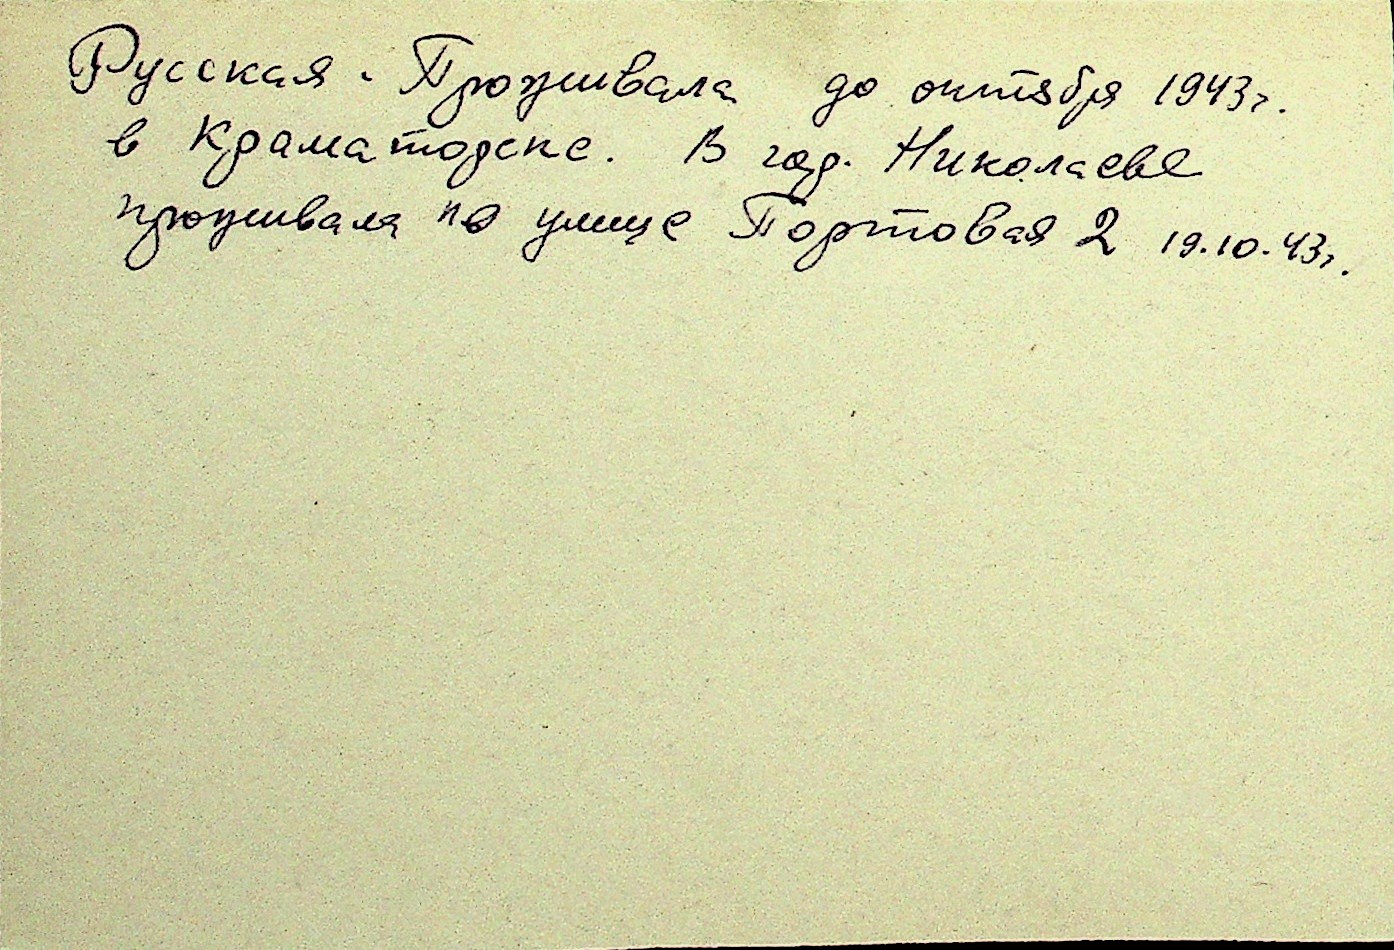 Русская. Проживала до октября 1943г.
в Краматорске. В гор. Николаеве
проживала по улице Портовая 2 19.10.43г.